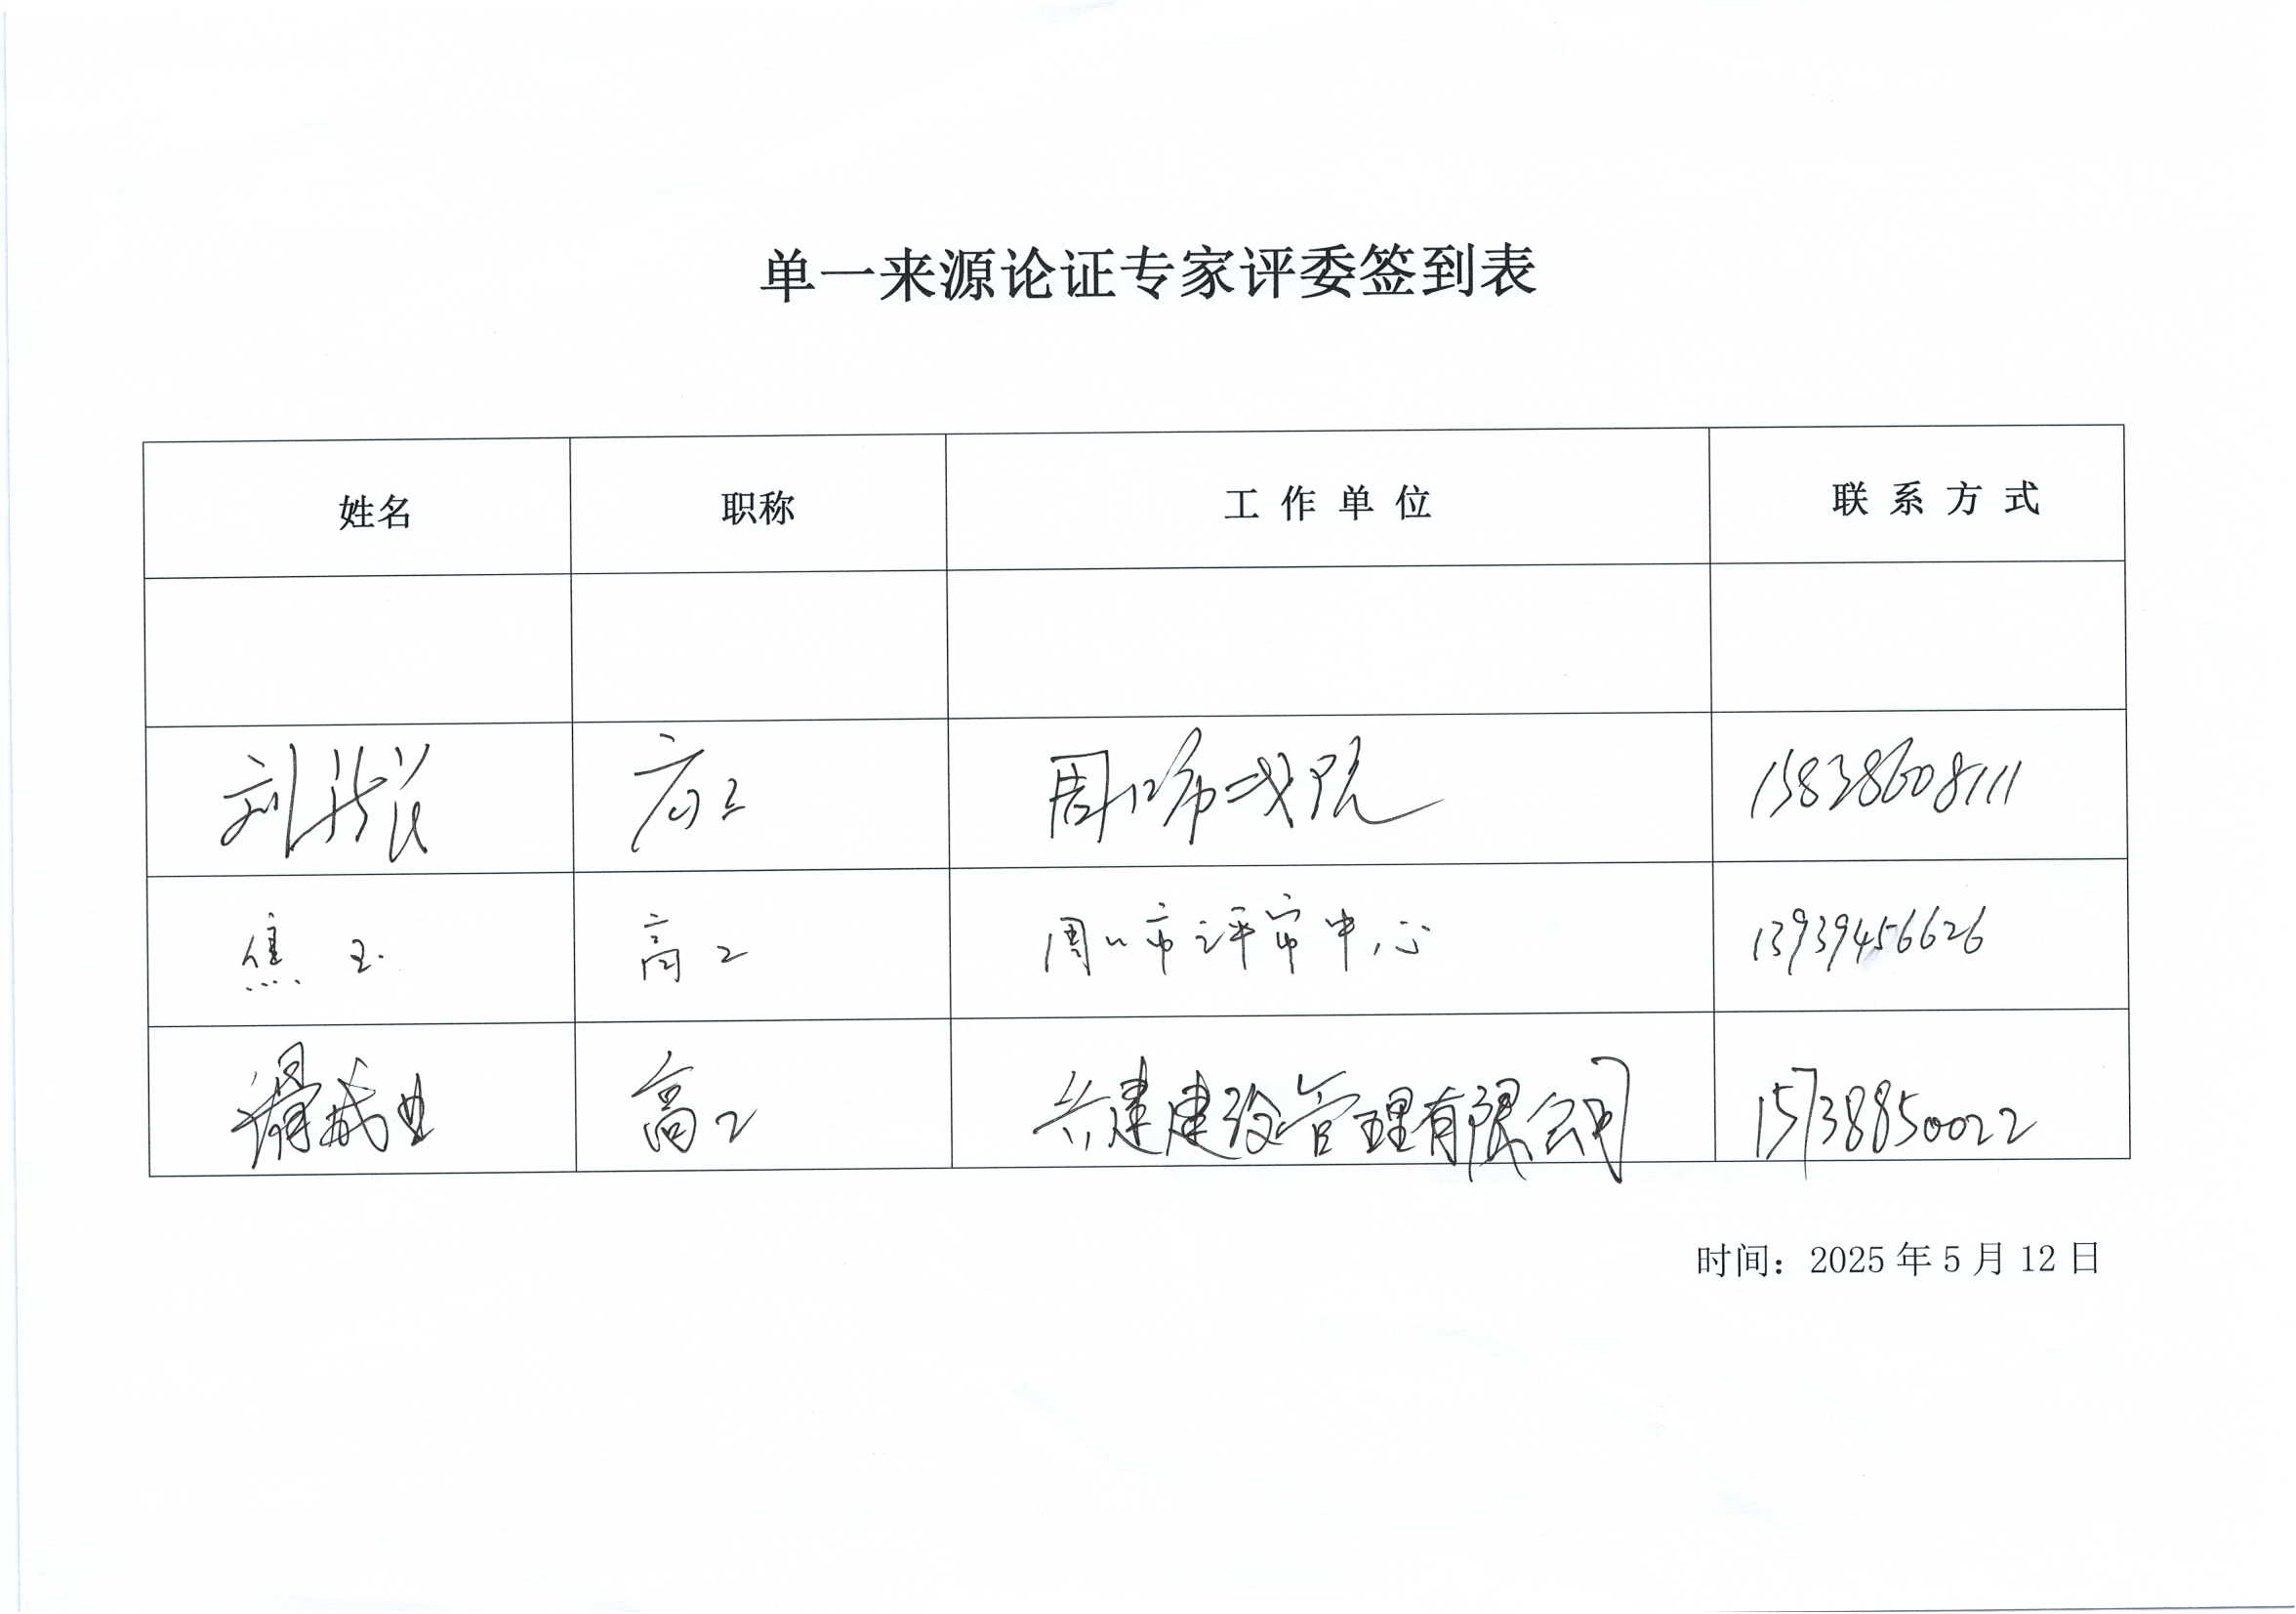 单一来源论证专家评委签到表
姓名 职称 工作单位 联系方式
刘 高工 周口市一战院 15838608111
焦玉 高工 周口市评审中心 13939456626
高工 兴建建设管理有限公司 15738850022
时间：2025年5月12日